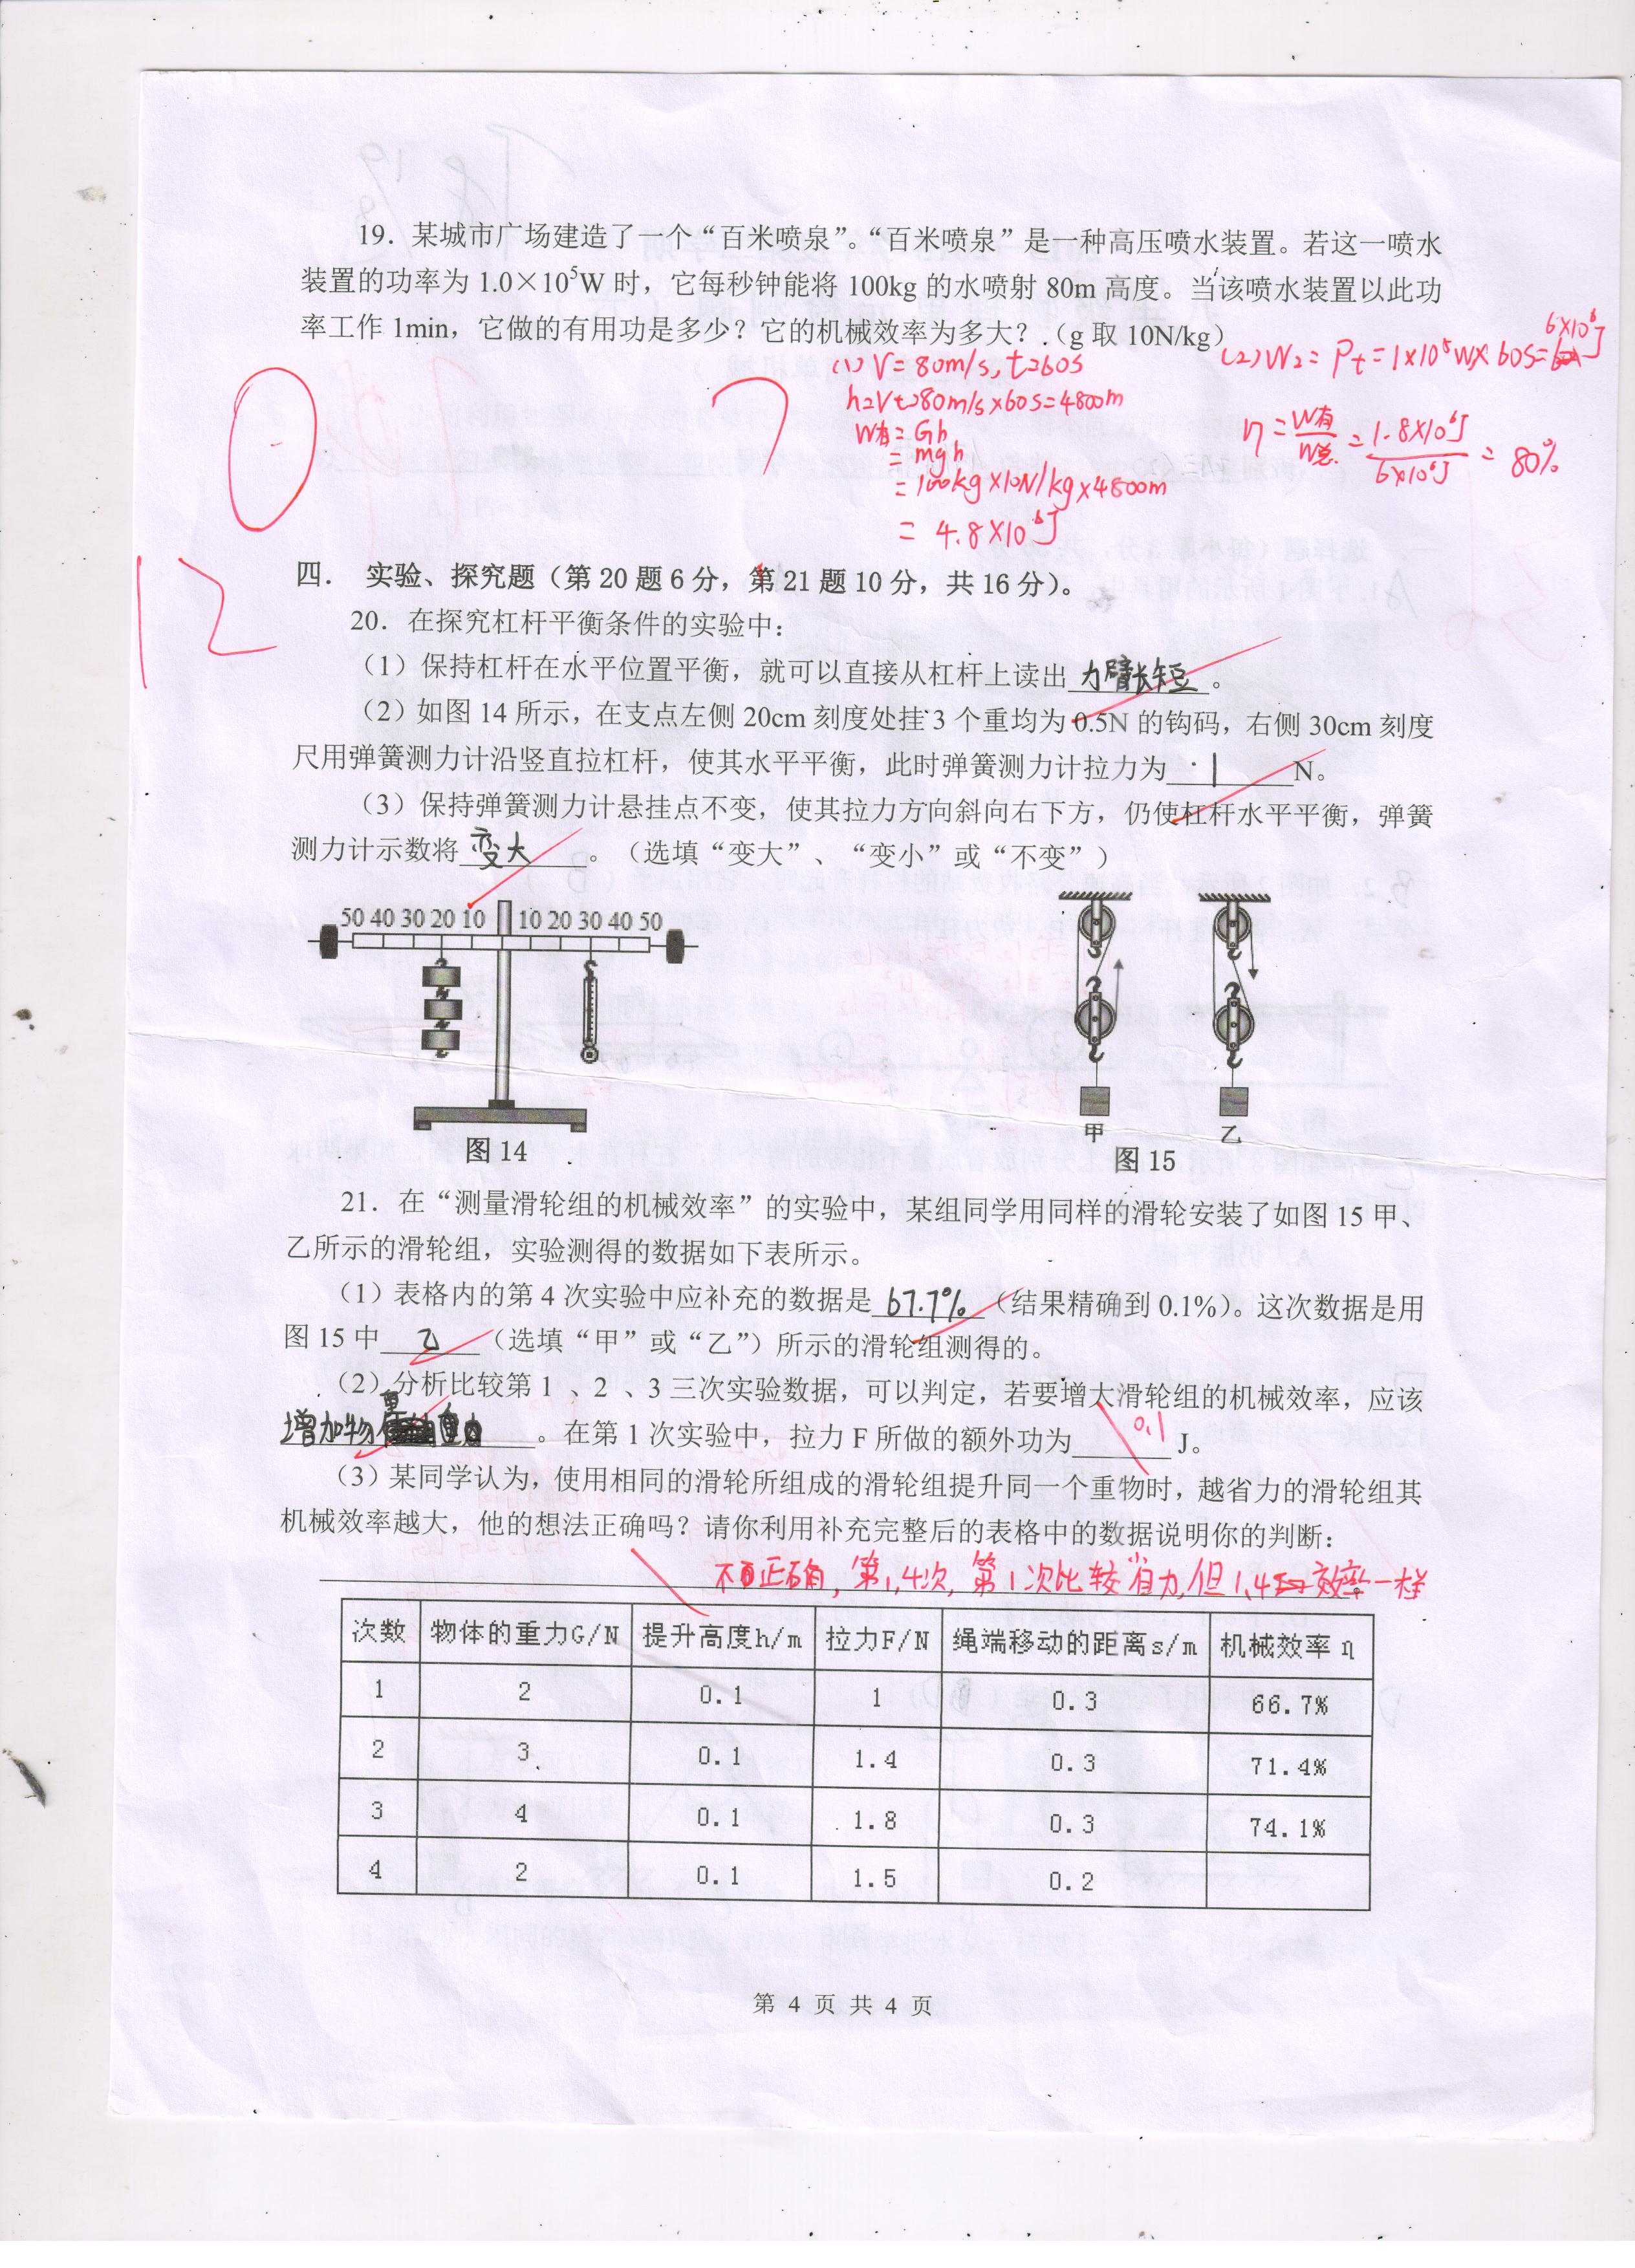 19．某城市广场建造了一个“百米喷泉”。“百米喷泉”是一种高压喷水装置。若这一喷水
装置的功率为 1.0×10⁵W 时，它每秒钟能将 100kg 的水喷射 80m 高度。当该喷水装置以此功
率工作 1min，它做的有用功是多少？它的机械效率为多大？（g 取 10N/kg）
(1) V=80m/s, t=60s
h=Vt=80m/s×60s=4800m
W有=Gh
=mgh
=100kg×10N/kg×4800m
=4.8×10⁶J
(2) W总=Pt=1×10⁵W×60s=6×10⁶J
η=W有/W总=1.8×10⁶J/6×10⁶J=80%
12
四． 实验、探究题（第 20 题 6 分，第 21 题 10 分，共 16 分）。
20．在探究杠杆平衡条件的实验中：
（1）保持杠杆在水平位置平衡，就可以直接从杠杆上读出 力臂长短 。
（2）如图 14 所示，在支点左侧 20cm 刻度处挂 3 个重均为 0.5N 的钩码，右侧 30cm 刻度
尺用弹簧测力计沿竖直拉杠杆，使其水平平衡，此时弹簧测力计拉力为 1 N。
（3）保持弹簧测力计悬挂点不变，使其拉力方向斜向右下方，仍使杠杆水平平衡，弹簧
测力计示数将 变大 。（选填“变大”、“变小”或“不变”）
50 40 30 20 10 10 20 30 40 50
图 14
甲 乙
图 15
21．在“测量滑轮组的机械效率”的实验中，某组同学用同样的滑轮安装了如图 15 甲、
乙所示的滑轮组，实验测得的数据如下表所示。
（1）表格内的第 4 次实验中应补充的数据是 67.7% （结果精确到 0.1%）。这次数据是用
图 15 中 乙 （选填“甲”或“乙”）所示的滑轮组测得的。
（2）分析比较第 1 、2 、3 三次实验数据，可以判定，若要增大滑轮组的机械效率，应该
增加物重 。在第 1 次实验中，拉力 F 所做的额外功为 0.1 J。
（3）某同学认为，使用相同的滑轮所组成的滑轮组提升同一个重物时，越省力的滑轮组其
机械效率越大，他的想法正确吗？请你利用补充完整后的表格中的数据说明你的判断：
不正确，第1,4次，第1次比较省力，但1,4效率一样
次数 物体的重力G/N 提升高度h/m 拉力F/N 绳端移动的距离s/m 机械效率 η
1 2 0.1 1 0.3 66.7%
2 3 0.1 1.4 0.3 71.4%
3 4 0.1 1.8 0.3 74.1%
4 2 0.1 1.5 0.2
第 4 页 共 4 页